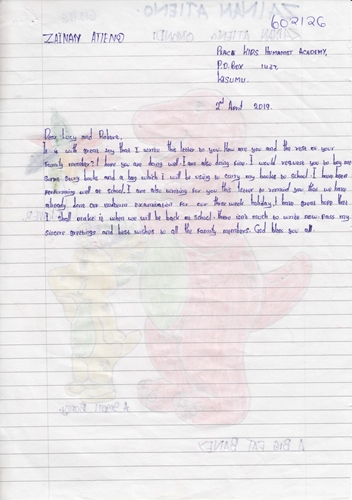 602126
ZAINAN ATIENO
PEACE KIDS HUMANIST ACADEMY,
P.O.BOX 1427,
KISUMU.
2nd April 2019.
Dear Lucy and
It is with great joy that I write this letter to you. How are you and the rest of your
family member? I hope you are doing well. I am also doing fine. I would request you to buy me
some story books and a bag which I will be using to carry my books to school. I have been
performing well at school. I am also writing for you this letter to remind you that we have
already done our endterm examination for our three week holiday. I have great hope that
I shall make it when we will be back at school. There isn't much to write now. Pass my
sincere greetings and best wishes to all the family members. God bless you all.
A BIG FAT BARNEY